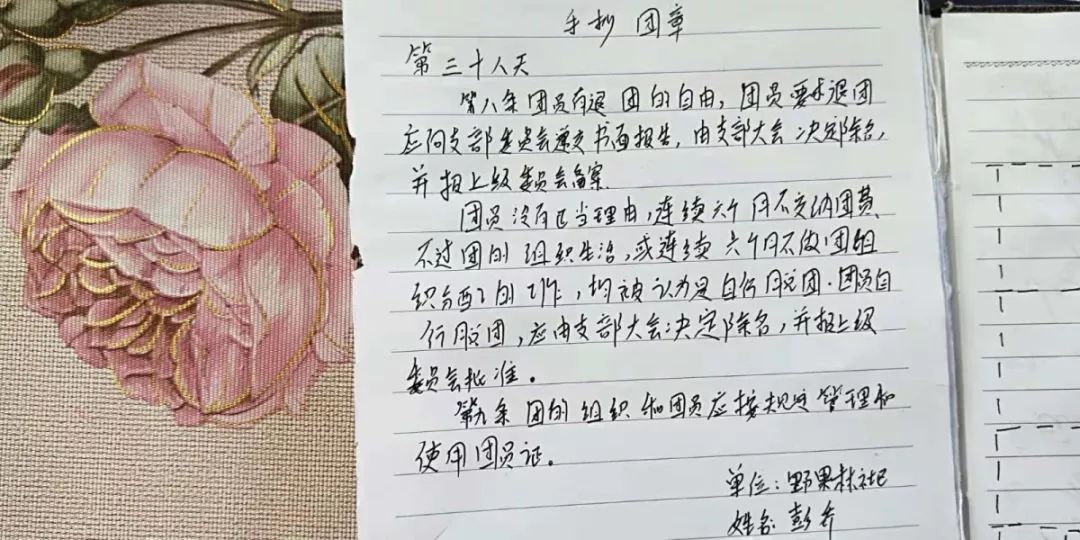 手抄 团章
第三十八天
第八条 团员有退 团的自由，团员要求退团
应向支部委员会递交书面报告，由支部大会 决定除名，
并报上级委员会备案
团员没有正当理由，连续六个月不交纳团费、
不过团的 组织生活，或连续 六个月不做团组
织分配的工作，均被认为是自行脱团．团员自
行脱团，应由支部大会决定除名，并报上级
委员会批准。
第九条 团的组织和团员应按规定管理和
使用团员证。
单位：野果林社区
姓名：彭乔